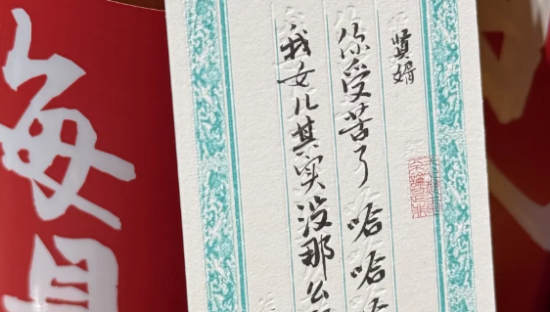 贤婿
你受苦了哈哈哈
我女儿其实没那么
海